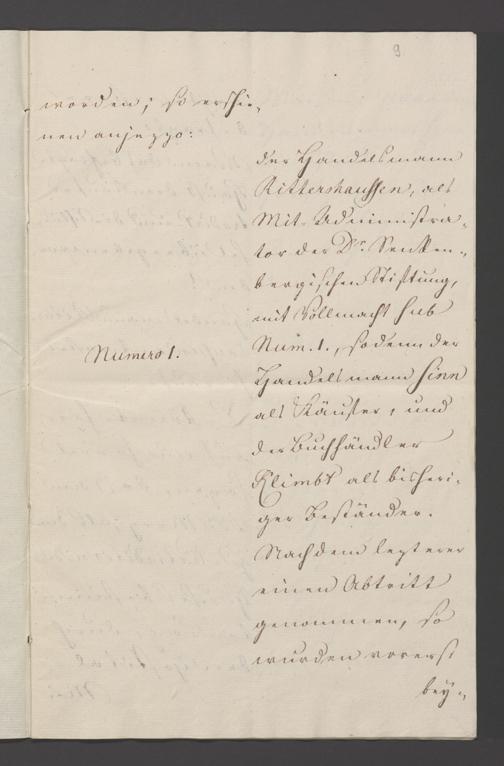 9
worden; so erschie-
nen anjezzo:
der Handelsmann
Rittershaussen, als
Mit-Administra-
tor der Dr. Senken-
bergischen Stiftung,
mit Vollmacht sub
Num. 1., sodenn der
Numero 1.
Handelsmann Finn
als Käuffer, und
der Buchhändler
Klimbt als bisheri-
ger Beständer.
Nachdem lezterer
einen Abtritt
genommen, so
wurden vorerst
bey-